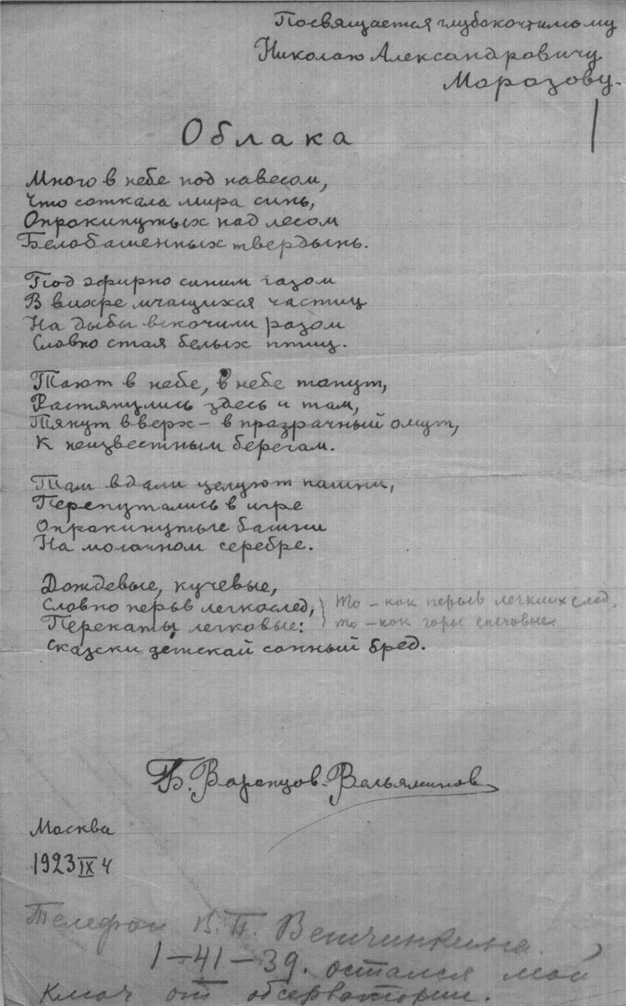 Посвящается глубокочтимому
Николаю Александровичу
Морозову.
Облака
Много в небе под навесом,
Что соткала мира синь,
Опрокинутых над лесом
Белобашенных твердынь.
Под эфирно синим газом
В вихре мчащихся частиц
На дыбы вскочили разом
Словно стая белых птиц.
Тают в небе, в небе тонут,
Растянулись здесь и там,
Тянут вверх – в прозрачный омут,
К неизвестным берегам.
Там вдали целуют пашни,
Перепутались в игре
Опрокинутые башни
На молочном серебре.
Дождевые, кучевые,
Словно перьев легкослед, } то – как перьев легких след,
Перекаты легковые: } то – как горы снеговые
Сказски детской сонный бред.
Б. Воронцов-Вельяминов
Москва
1923 IX 4
Телефон В. П. Ветчинкина
1–41–39. остался мой
ключ от обсерватории.